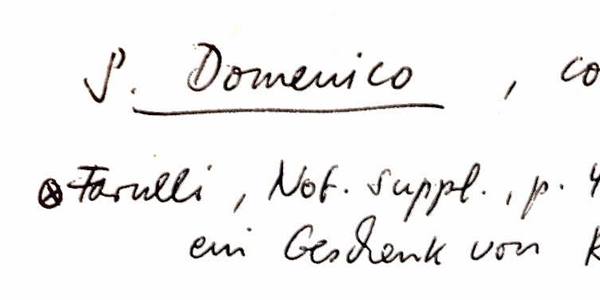 S. Domenico , co
⊗ Farulli , Not. suppl. , p. 4
ein Geschenk von R